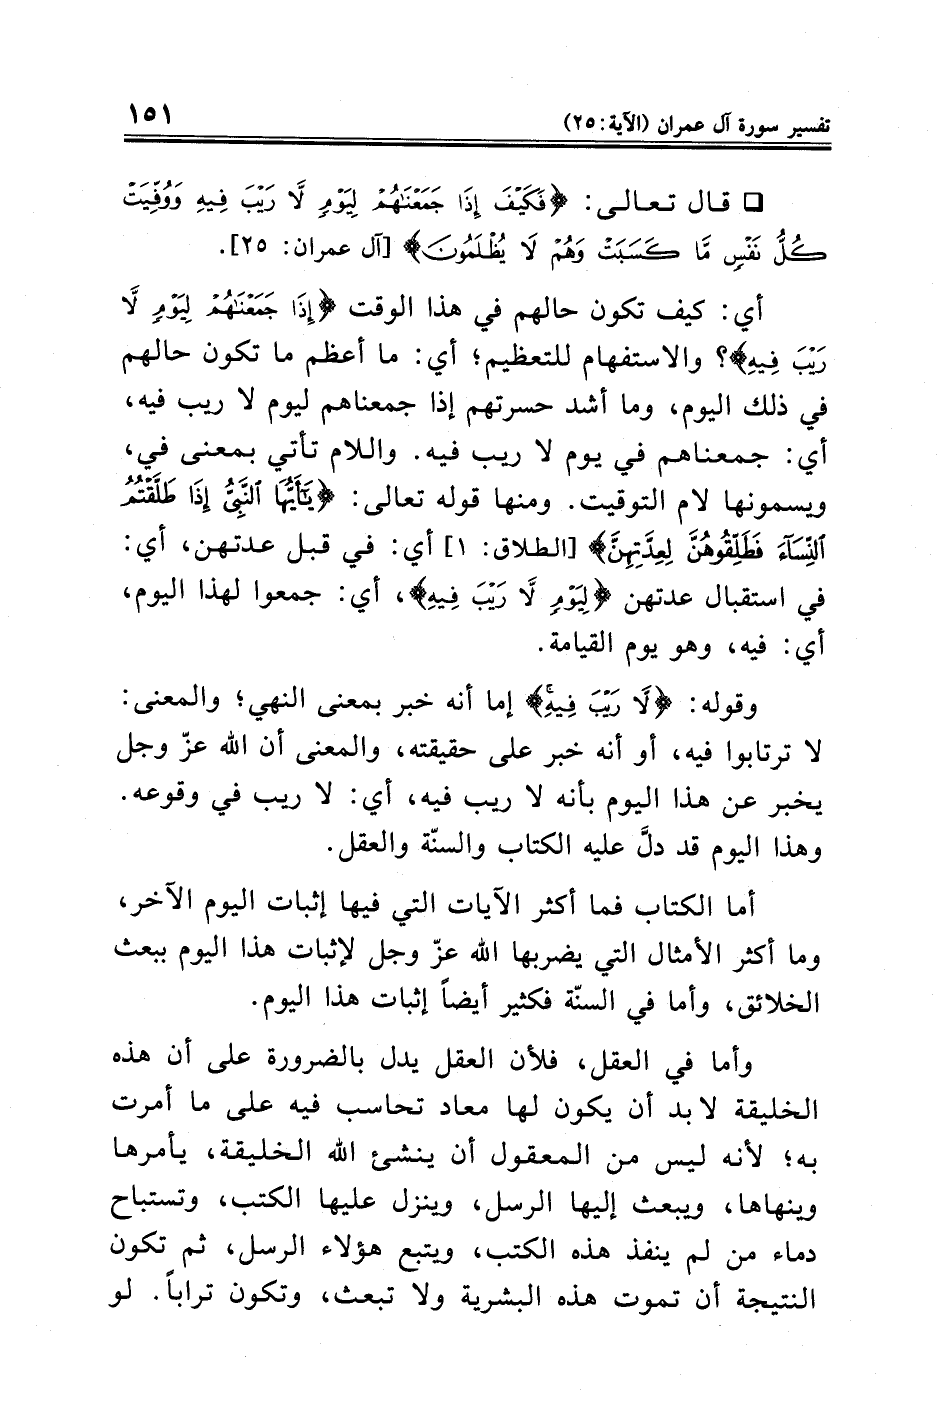 تفسير سورة آل عمران (الآية: ٢٥) ١٥١
❑ قال تعالى: ﴿فَكَيْفَ إِذَا جَمَعْنَٰهُمْ لِيَوْمٍ لَّا رَيْبَ فِيهِ وَوُفِّيَتْ
كُلُّ نَفْسٍ مَّا كَسَبَتْ وَهُمْ لَا يُظْلَمُونَ﴾ [آل عمران: ٢٥].
أي: كيف تكون حالهم في هذا الوقت ﴿إِذَا جَمَعْنَٰهُمْ لِيَوْمٍ لَّا
رَيْبَ فِيهِ﴾؟ والاستفهام للتعظيم؛ أي: ما أعظم ما تكون حالهم
في ذلك اليوم، وما أشد حسرتهم إذا جمعناهم ليوم لا ريب فيه،
أي: جمعناهم في يوم لا ريب فيه. واللام تأتي بمعنى في،
ويسمونها لام التوقيت. ومنها قوله تعالى: ﴿يَٰٓأَيُّهَا ٱلنَّبِىُّ إِذَا طَلَّقْتُمُ
ٱلنِّسَآءَ فَطَلِّقُوهُنَّ لِعِدَّتِهِنَّ﴾ [الطلاق: ١] أي: في قبل عدتهن، أي:
في استقبال عدتهن ﴿لِيَوْمٍ لَّا رَيْبَ فِيهِ﴾، أي: جمعوا لهذا اليوم،
أي: فيه، وهو يوم القيامة.
وقوله: ﴿لَّا رَيْبَ فِيهِۚ﴾ إما أنه خبر بمعنى النهي؛ والمعنى:
لا ترتابوا فيه، أو أنه خبر على حقيقته، والمعنى أن الله عزّ وجل
يخبر عن هذا اليوم بأنه لا ريب فيه، أي: لا ريب في وقوعه.
وهذا اليوم قد دلَّ عليه الكتاب والسنّة والعقل.
أما الكتاب فما أكثر الآيات التي فيها إثبات اليوم الآخر،
وما أكثر الأمثال التي يضربها الله عزّ وجل لإثبات هذا اليوم ببعث
الخلائق، وأما في السنّة فكثير أيضاً إثبات هذا اليوم.
وأما في العقل، فلأن العقل يدل بالضرورة على أن هذه
الخليقة لا بد أن يكون لها معاد تحاسب فيه على ما أمرت
به؛ لأنه ليس من المعقول أن ينشئ الله الخليقة، يأمرها
وينهاها، ويبعث إليها الرسل، وينزل عليها الكتب، وتستباح
دماء من لم ينفذ هذه الكتب، ويتبع هؤلاء الرسل، ثم تكون
النتيجة أن تموت هذه البشرية ولا تبعث، وتكون تراباً. لو